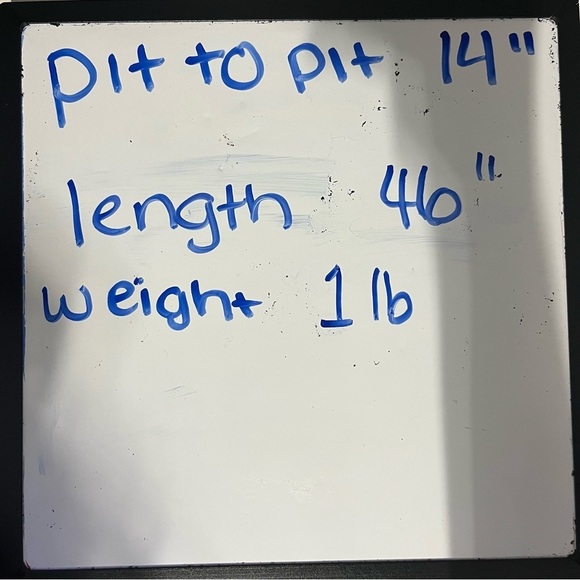 pit to pit 14"
length 46"
weight 1 lb